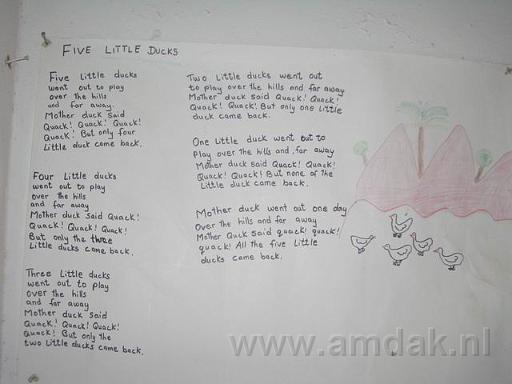 FIVE LITTLE DUCKS
Five little ducks
went out to play
over the hills
and far away.
Mother duck said
Quack! Quack! Quack!
Quack! But only four
little duck came back.
Four little ducks
went out to play
over the hills
and far away
Mother duck said Quack!
Quack! Quack! Quack!
But only the three
little ducks came back.
Three little ducks
went out to play
over the hills
and far away
Mother duck said
Quack! Quack! Quack!
Quack! But only the
two little ducks came back.
Two little ducks went out
to play over the hills and far away
Mother duck said Quack! Quack!
Quack! Quack! But only one little
duck came back.
One little duck went out to
play over the hills and far away
Mother duck said Quack! Quack!
Quack! Quack! But none of the
little duck came back.
Mother duck went out one day
over the hills and far away
Mother Quck said quack! quack!
quack! All the five little
ducks came back.
www.amdak.nl